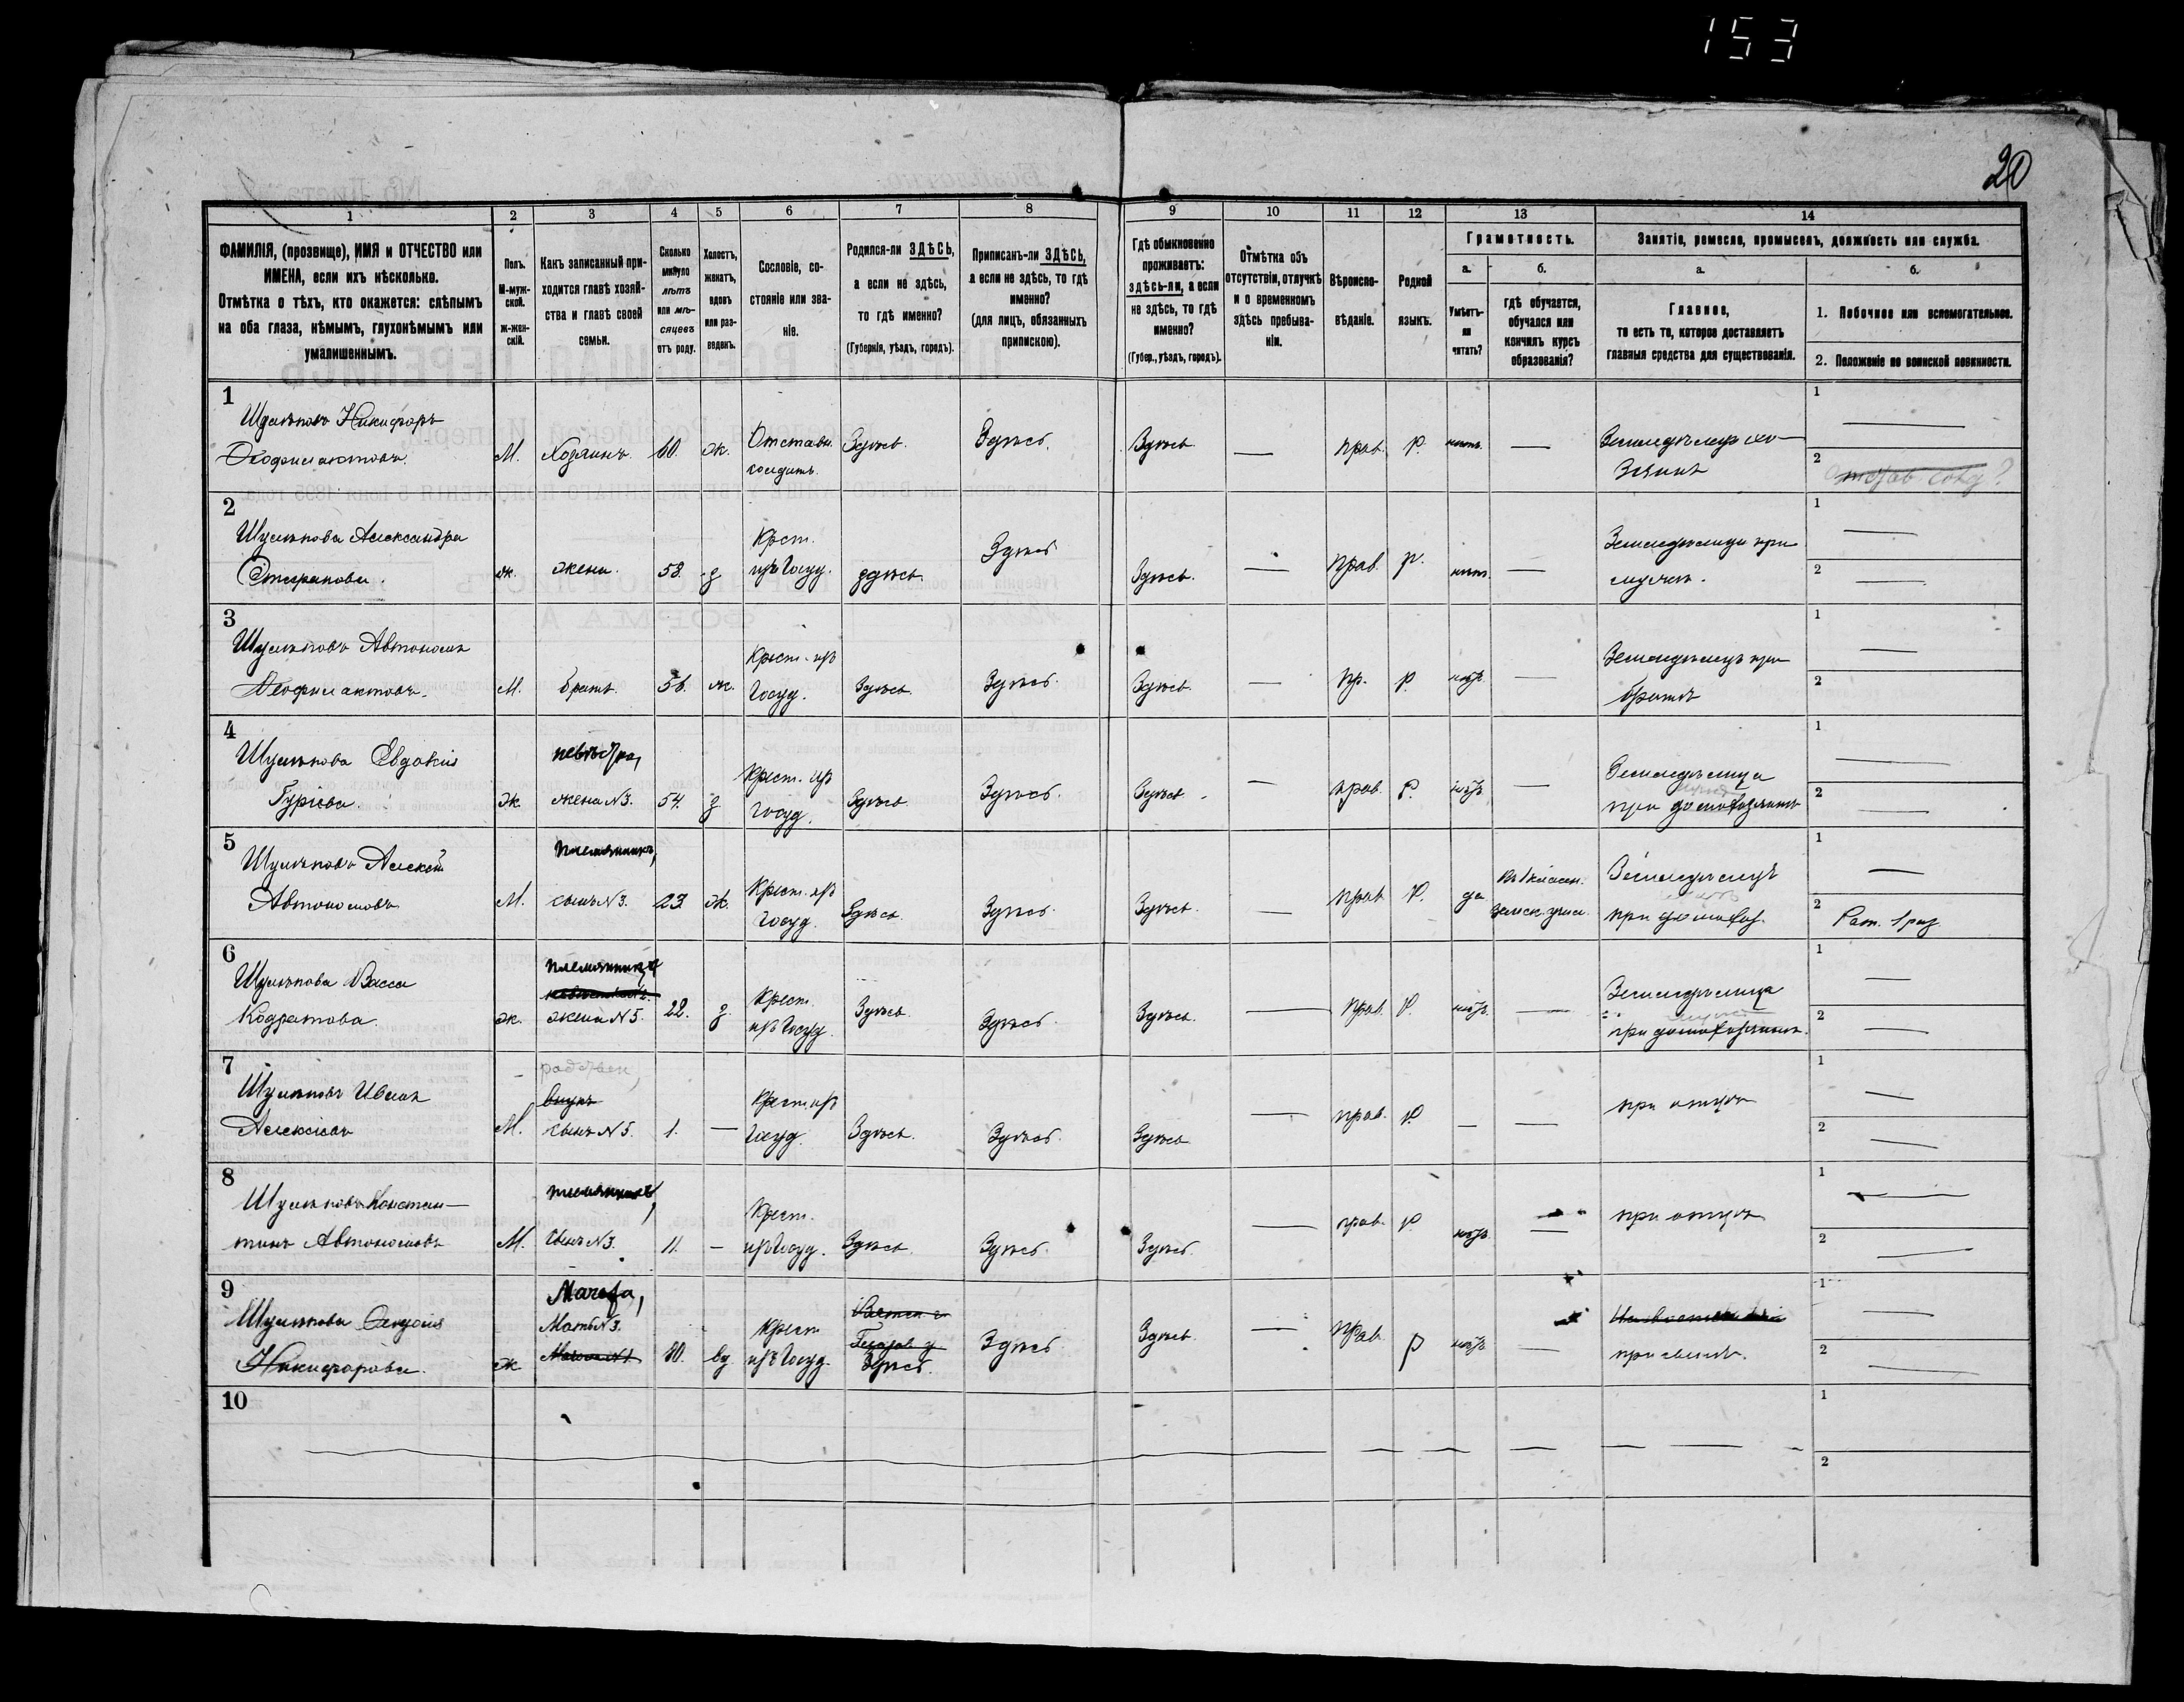 153
20
1
2
3
4
5
6
7
8
9
10
11
12
13
14
ФАМИЛІЯ, (прозвище), ИМЯ и ОТЧЕСТВО или
ИМЕНА, если ихъ нѣсколько.
Отмѣтка о тѣхъ, кто окажется: слѣпымъ
на оба глаза, нѣмымъ, глухонѣмымъ или
умалишеннымъ.
Полъ.
М-муж-
ской.
Ж-жен-
скій.
Какъ записанный при-
ходится главѣ хозяй-
ства и главѣ своей
семьи.
Сколько
минуло
лѣтъ
или мѣ-
сяцевъ
отъ роду.
Холостъ,
женатъ,
вдовъ
или раз-
веденъ.
Сословіе, со-
стояніе или зва-
ніе.
Родился-ли ЗДѢСЬ,
а если не здѣсь,
то гдѣ именно?
(Губернія, уѣздъ, городъ).
Приписанъ-ли ЗДѢСЬ,
а если не здѣсь, то гдѣ
именно?
(для лицъ, обязанныхъ
припискою).
Гдѣ обыкновенно
проживаетъ:
здѣсь-ли, а если
не здѣсь, то гдѣ
именно?
(Губер., уѣздъ, городъ).
Отмѣтка объ
отсутствіи, отлучкѣ
и о временномъ
здѣсь пребыва-
ніи.
Вѣроиспо-
вѣданіе.
Родной
языкъ.
Грамотность.
а.
Умѣетъ-
ли
читать?
б.
гдѣ обучается,
обучался или
кончилъ курсъ
образованія?
Занятіе, ремесло, промыселъ, должность или служба.
а.
Главное,
то есть то, которое доставляетъ
главныя средства для существованія.
б.
1. Побочное или вспомогательное.
2. Положеніе по воинской повинности.
1
Шулятовъ Никифоръ
Феофилактовъ
М. Хозяинъ 60. ж. Отставн.
солдатъ
Здѣсь. Здѣсь. Здѣсь — прав. р. нѣтъ. —
Земледѣлецъ хо-
зяинъ
1 —
2 отстав солд?
2
Александра
Степанова.
ж. жена. 58. з
Крест.
изъ Госуд.
здѣсь. Здѣсь Здѣсь. — прав. р. нѣтъ. —
Земледѣлица при
мужѣ.
1 —
2 —
3
Автономъ
Феофилактовъ.
М. братъ. 56. ж.
Крест. изъ
Госуд.
Здѣсь. Здѣсь. Здѣсь. — пр. р. нѣтъ —
Земледѣлецъ при
братѣ
1 —
2 —
4
Евдокія
Гурьева.
невѣстка,
ж жена N3. 54. з
Крест. изъ
госуд.
Здѣсь Здѣсь. Здѣсь. — прав. р. нѣтъ —
Земледѣлица
при домохозяинѣ
1 —
2 —
5
Алексѣй
Автономовъ
племянникъ,
М. сынъ N3. 23 ж.
Крест. изъ
госуд.
Здѣсь. Здѣсь. Здѣсь. — прав. р. да
въ 1 классн.
земск. учил.
Земледѣлецъ
при домохоз.
1 —
2 Рат. 1 раз
6
Васса
Кодратова.
ж. жена N5. 22. з.
Крест.
изъ Госуд.
Здѣсь. Здѣсь. Здѣсь. — прав. р. нѣтъ. —
Земледѣлица
при домохозяинѣ.
1 —
2 —
7
Иванъ
Алексѣевъ
родствен,
внукъ
М. сынъ N5. 1. —
Крест изъ
Госуд.
Здѣсь. Здѣсь. Здѣсь — прав. р. — —
при отцѣ
1 —
2 —
8
Констан-
тинъ Автономовъ
племянникъ,
М. сынъ N3. 11. —
Крест.
изъ Госуд.
Здѣсь. Здѣсь. Здѣсь. — прав. р. нѣтъ —
при отцѣ
1 —
2 —
9
Никифорова.
Мачеха,
Мать N3.
ж Мачеха N1. 80. вд
Крест
изъ Госуд.
Вятск. г.
Глазов у
Здѣсь.
Здѣсь. Здѣсь. — Прав. р нѣтъ —
при сынѣ.
1 —
2 —
10
1
2